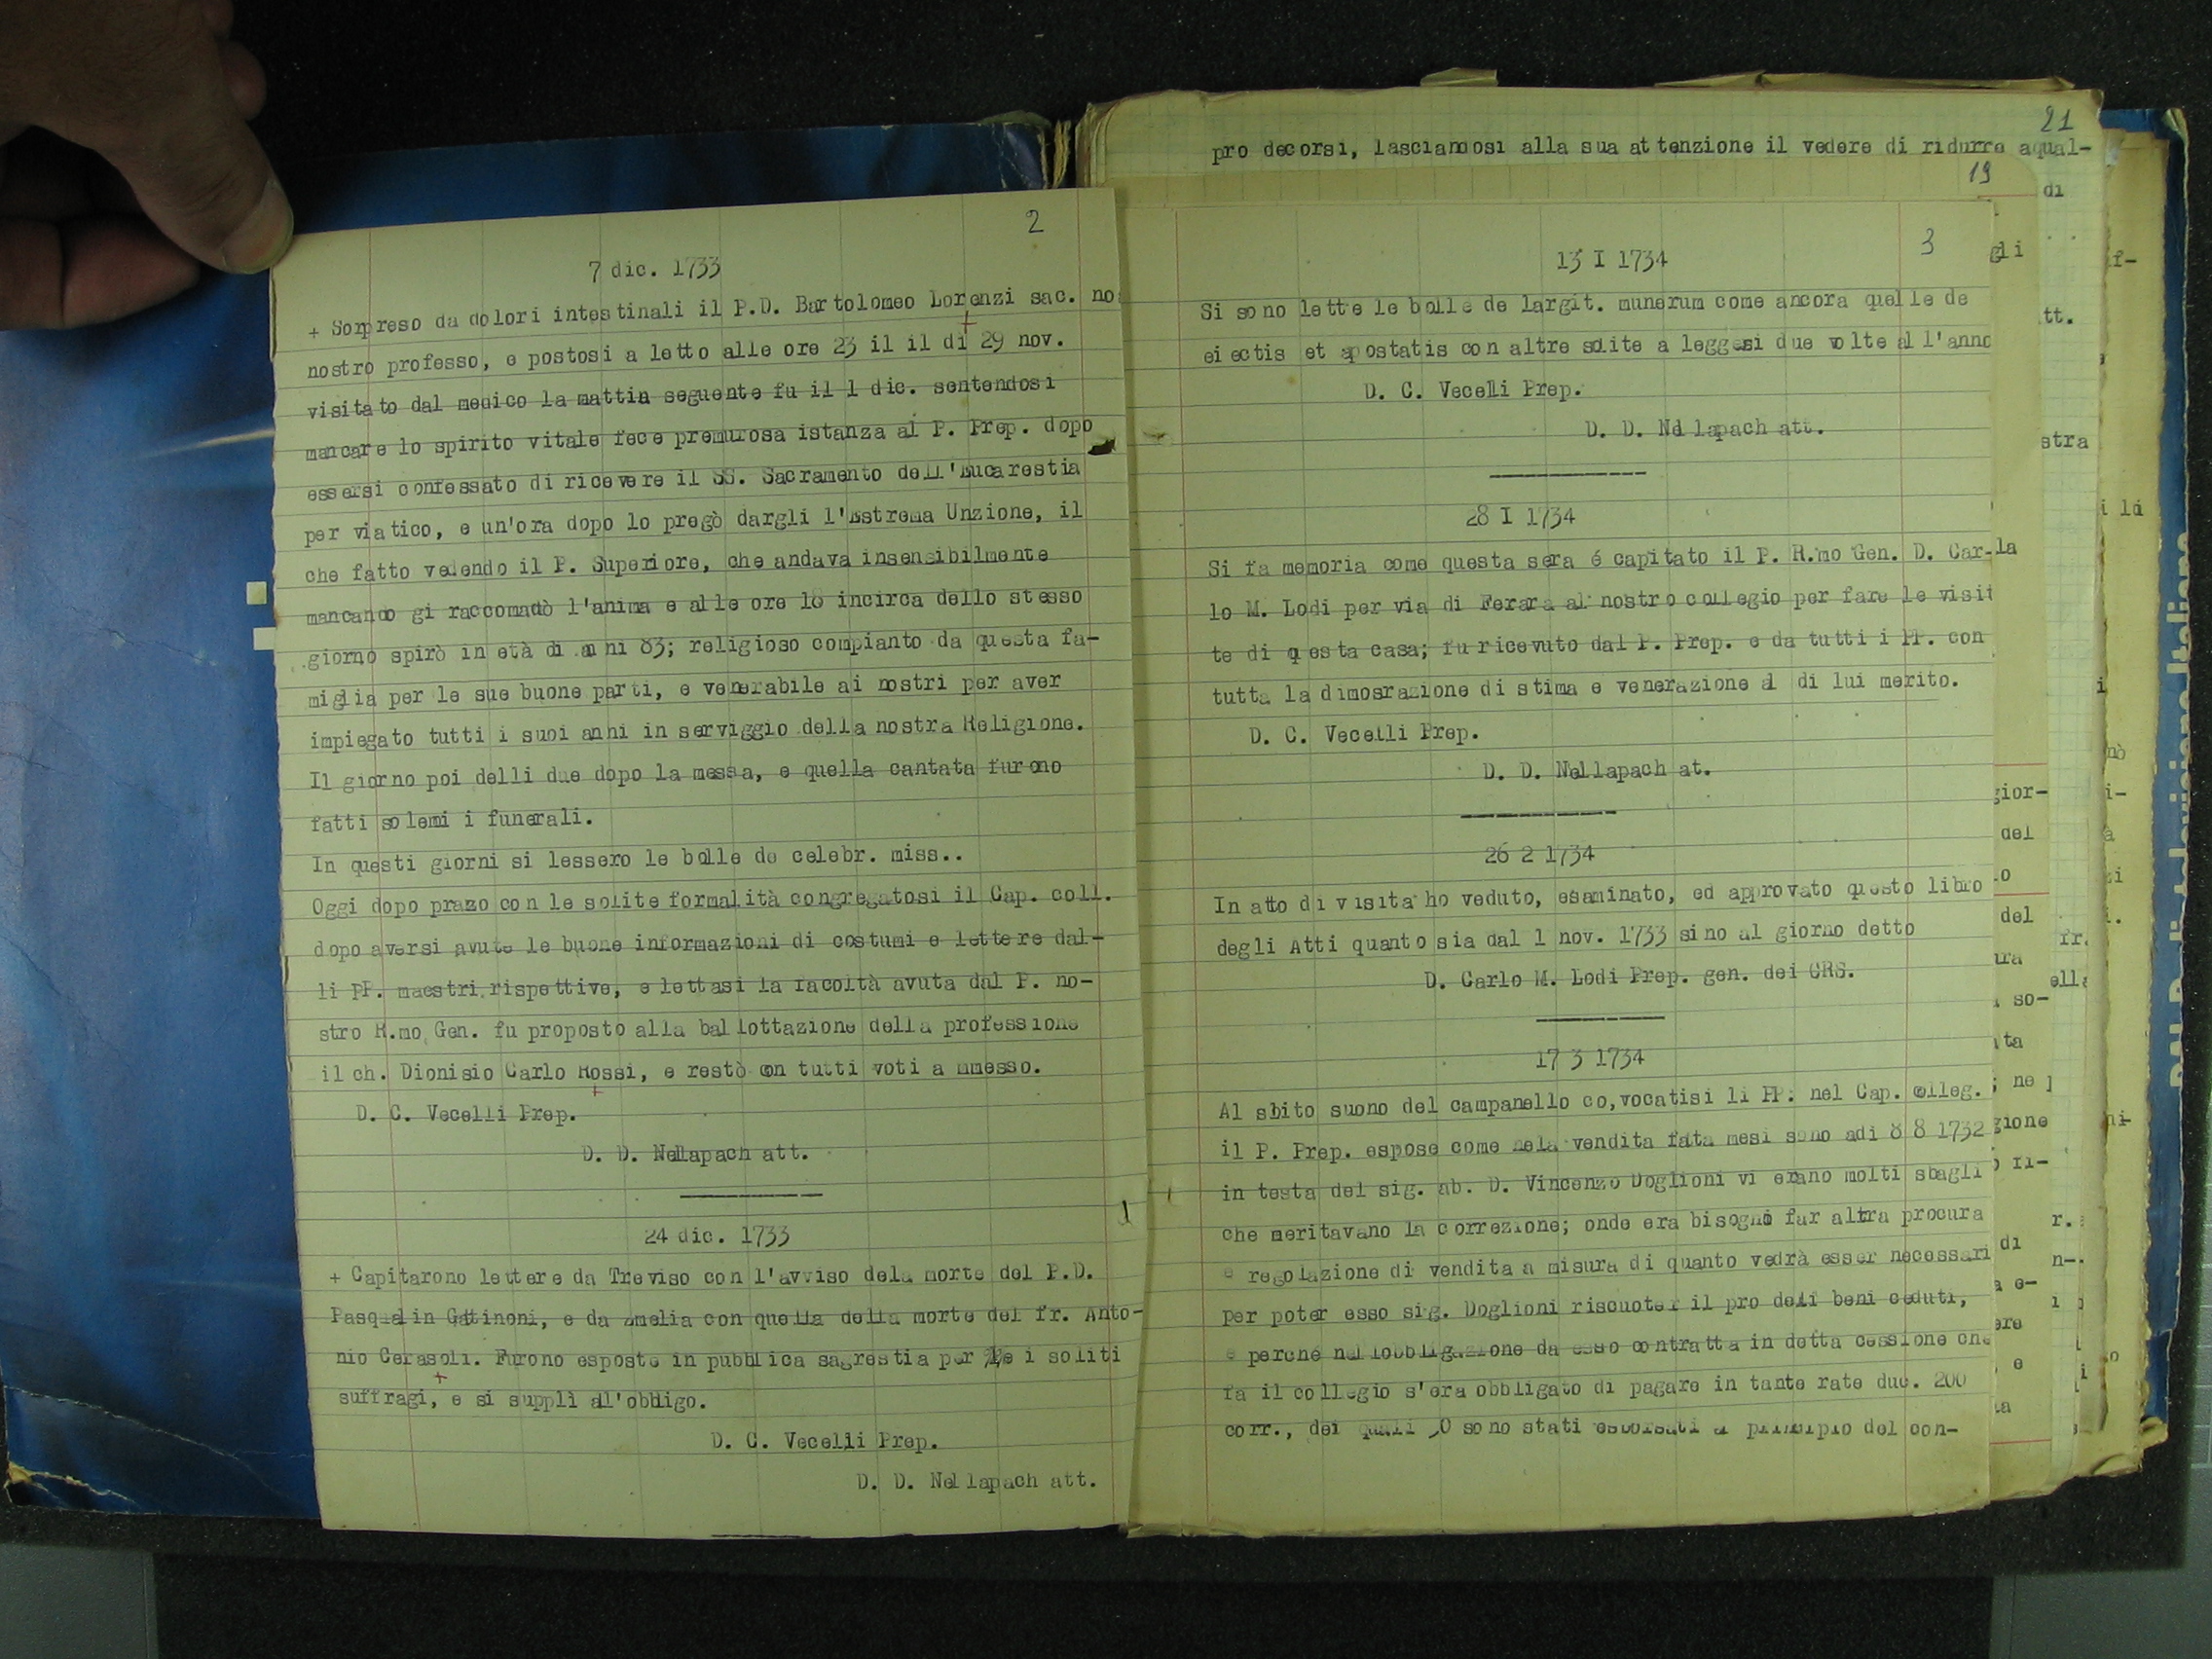 2
7 dic. 1733
+ Sorpreso da dolori intestinali il P.D. Bartolomeo Lorenzi sac. no
nostro professo, e postosi a letto alle ore 23 il il di 29 nov.
visitato dal medico la mattin seguente fu il 1 dic. sentendosi
mancare lo spirito vitale fece premurosa istanza al P. Prep. dopo
essersi confessato di ricevere il SS. Sacramento dell'Eucarestia
per viatico, e un'ora dopo lo pregò dargli l'Estrema Unzione, il
che fatto vedendo il P. Superiore, che andava insensibilmente
mancando gi raccomadò l'anima e alle ore 18 incirca dello stesso
giorno spirò in età di anni 83; religioso compianto da questa fa-
miglia per le sue buone parti, e venerabile ai nostri per aver
impiegato tutti i suoi anni in serviggio della nostra Religione.
Il giorno poi delli due dopo la messa, e quella cantata furono
fatti solemi i funerali.
In questi giorni si lessero le bolle de celebr. miss..
Oggi dopo prazo con le solite formalità congregatosi il Cap. coll.
dopo aversi avute le buone informazioni di costumi e lettere dal-
li PP. maestri rispettive, e lettasi la facoltà avuta dal P. no-
stro R.mo Gen. fu proposto alla ballottazione della professione
il ch. Dionisio Carlo Rossi, e restò con tutti voti a mmesso.
D. C. Vecelli Prep.
D. D. Nellapach att.
24 dic. 1733
+ Capitarono lettere da Treviso con l'avviso dela morte del P.D.
Pasqualin Gattinoni, e da Amelia con quella della morte del fr. Anto-
nio Cerasoli. Furono esposte in pubblica sagrestia per i soliti
suffragi, e si supplì all'obbligo.
D. C. Vecelli Prep.
D. D. Nellapach att.
21
pro decorsi, lasciandosi alla sua attenzione il vedere di ridurre aqual-
19
3
13 I 1734
Si sono lette le bolle de largit. munerum come ancora quelle de
eiectis et apostatis con altre solite a leggesi due volte al l'anno
D. C. Vecelli Prep.
D. D. Nellapach att.
28 I 1734
Si fa memoria come questa sera é capitato il P. R.mo Gen. D. Car-
lo M. Lodi per via di Ferara al nostro collegio per fare le visit
te di questa casa; fu ricevuto dal P. Prep. e da tutti i PP. con
tutta la dimosrazione di stima e venerazione al di lui merito.
D. C. Vecelli Prep.
D. D. Nellapach at.
26 2 1734
In atto di visita ho veduto, esaminato, ed approvato questo libro
degli Atti quanto sia dal 1 nov. 1733 sino al giorno detto
D. Carlo M. Lodi Prep. gen. dei CRS.
17 3 1734
Al sbito suono del campanello co,vocatisi li PP. nel Cap. colleg.
il P. Prep. espose come nela vendita fata mesi sono adi 8 8 1732
in testa del sig. ab. D. Vincenzo Doglioni vi erano molti sbagli
che meritavano la correzione; onde era bisogno far altra procura
e regolazione di vendita a misura di quanto vedrà esser necessari
per poter esso sig. Doglioni riscuoter il pro delli beni ceduti,
e perché nell'obbligazione da esso contratta in detta cessione che
fa il collegio s'era obbligato di pagare in tante rate duc. 200
corr., dei quali sono stati esborsati al principio del con-